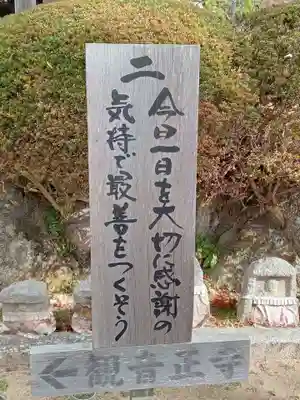 二
今日一日を大切に感謝の
気持で最善をつくそう
←観音正寺